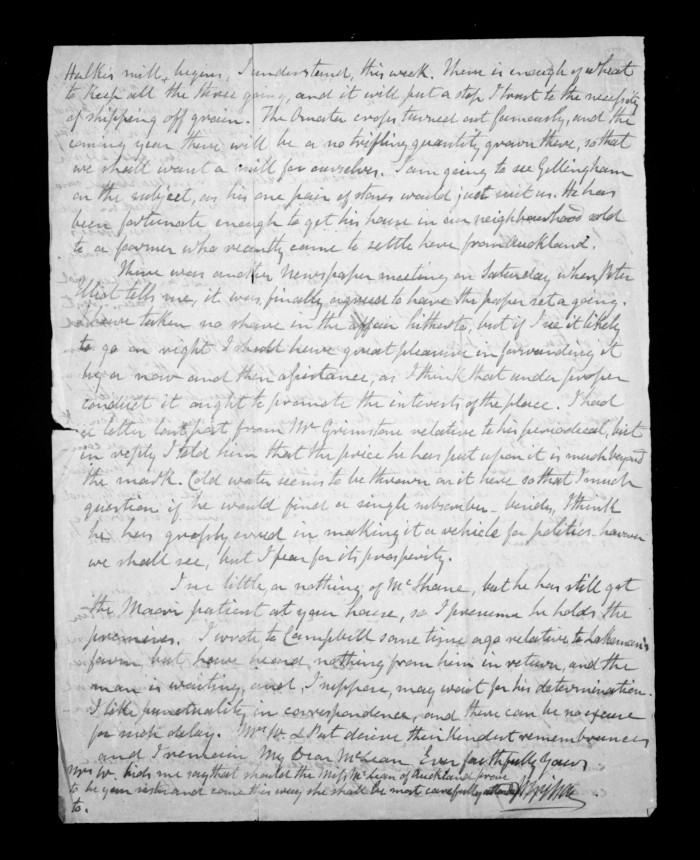 mill, begins, I understand, this week. There is enough of wheat
to keep all the three going, and it will put a stop I trust to the necessity
of shipping off grain. The crops turned out famously, and the
coming year there will be a no trifling quantity grown there, so that
we shall want a mill for ourselves. I am going to see Gillingham
on the subject, as his one pair of stones would just suit us. He has
been fortunate enough to get his house in our neighbourhood sold
to a farmer who recently came to settle here from Auckland.
There was another Newspaper meeting on Saturday, when Peter
tells me, it was finally agreed to have the paper set a going.
I have taken no share in the affair hitherto, but if I see it likely
to go on right I shall have great pleasure in forwarding it
by a now and then assistance, as I think that under proper
conduct it ought to promote the interests of the place. I had
a letter last post from Mr Grimstone relative to his periodical, but
in reply I told him that the price he has put upon it is much beyond
the mark. Cold water seems to be thrown on it here so that I much
question if he would find a single subscriber - besides, I think
he has grossly erred in making it a vehicle for politics - however
we shall see, but I fear for its prosperity.
I see little or nothing of McShane, but he has still got
the Maori patient at your house, so I presume he holds the
premises. I wrote to Campbell some time ago relative to
farm, but have heard nothing from him in return, and the
man is waiting, and, I suppose, may wait for his determination.
I like punctuality in correspondence, and there can be no excuse
for such delay. Mrs W. & Pat desire their kindest remembrances
and I remain My Dear McLean Ever faithfully Yours
Mrs W. bids me say that should the Miss McLean of Auckland prove
to be your sister and come this way she shall be most carefully attended
to.